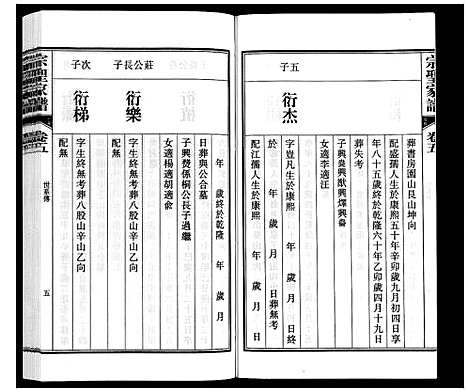 宗聖家譜
卷五
葬書房園山艮山坤向
配盛孺人生於康熙五十年辛卯歲九月初四日享
年八十五歲終於乾隆六十年乙卯歲四月十九日
葬失考
子興
女適李適汪
五子
衍杰
字豈凡生於康熙 年 歲 月 日終
於 年 歲 月 日葬無考
配江孺人生於康熙 年 歲 月 日
宗聖家譜
卷五
世系傳
五
年 歲終於乾隆 年 歲 月
日葬與公合墓
子興 係桐公長子過繼
女適楊適胡適俞
莊公長子
衍樂
字生終無考葬八股山辛山乙向
配無
次子
衍梯
字生終無考葬八股山辛山乙向
配無